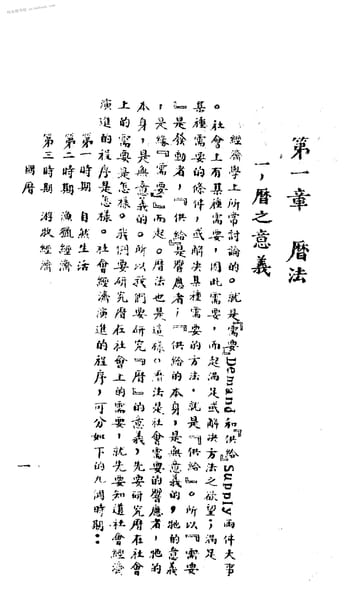 第一章　曆法
一，曆之意義
經濟學上所常討論的。就是『需要』Demand和『供給』Supply兩件大事
。社會上有某種需要，因此需要，而起滿足或解決方法之欲望；滿足
某種需要的條件，或解決某種需要的方法。就是『供給』。所以『需要
』是發動者，『供給』是響應者；『供給的本身，是無意義的，牠的意義
，是緣『需要』而起。曆法也是這樣。曆法是社會需要的響應者，牠的
本身，是無意義的。所以我們要研究『曆』的意義，先要研究曆在社會
上的需要是怎樣。我們要研究曆在社會上的需要，就先要知道社會經濟
演進的程序是怎樣。社會經濟演進的程序，可分如下的九個時期：
第一時期　自然生活
第二時期　漁獵經濟
第三時期　游牧經濟
國曆
一